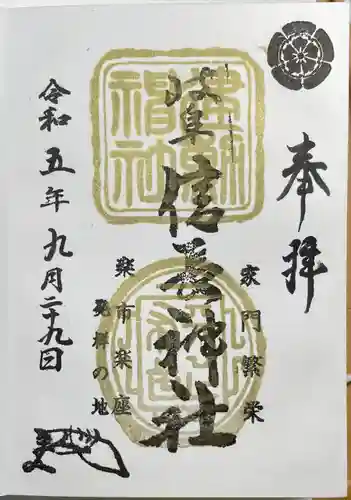 奉拝
家門繁栄
岐阜信長神社
楽市楽座
発祥の地
令和五年九月二十九日